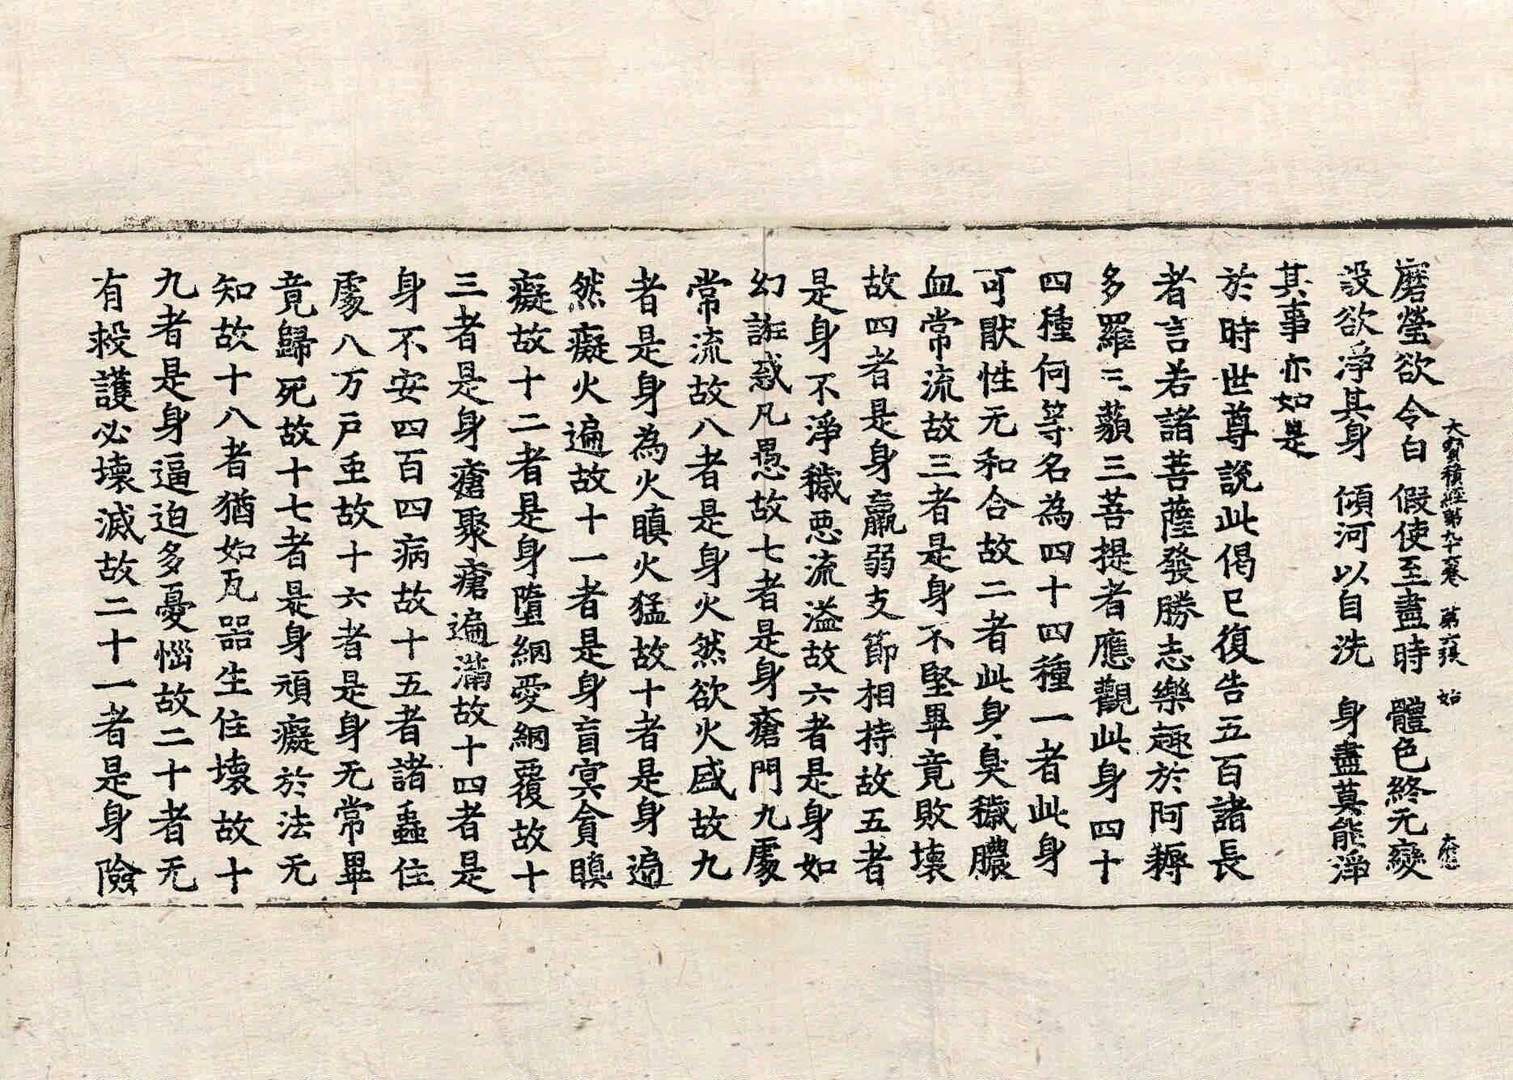 大寶積經第九十六卷 第六張 始
磨瑩欲令白 假使至盡時 體色終无變
設欲淨其身 傾河以自洗 身盡莫能淨
其事亦如是
於時世尊說此偈已復告五百諸長
者言若諸菩薩發勝志樂趣於阿耨
多羅三藐三菩提者應觀此身四十
四種何等名為四十四種一者此身
可猒性无和合故二者此身臭穢膿
血常流故三者是身不堅畢竟敗壞
故四者是身羸弱支節相持故五者
是身不淨穢惡流溢故六者是身如
幻誑惑凡愚故七者是身瘡門九處
常流故八者是身火然欲火盛故九
者是身為火瞋火猛故十者是身遍
然癡火遍故十一者是身盲冥貪瞋
癡故十二者是身墮網愛網覆故十
三者是身瘡聚瘡遍滿故十四者是
身不安四百四病故十五者諸蟲住
處八万戶虫故十六者是身无常畢
竟歸死故十七者是身頑癡於法无
知故十八者猶如瓦器生住壞故十
九者是身逼迫多憂惱故二十者无
有救護必壞滅故二十一者是身險